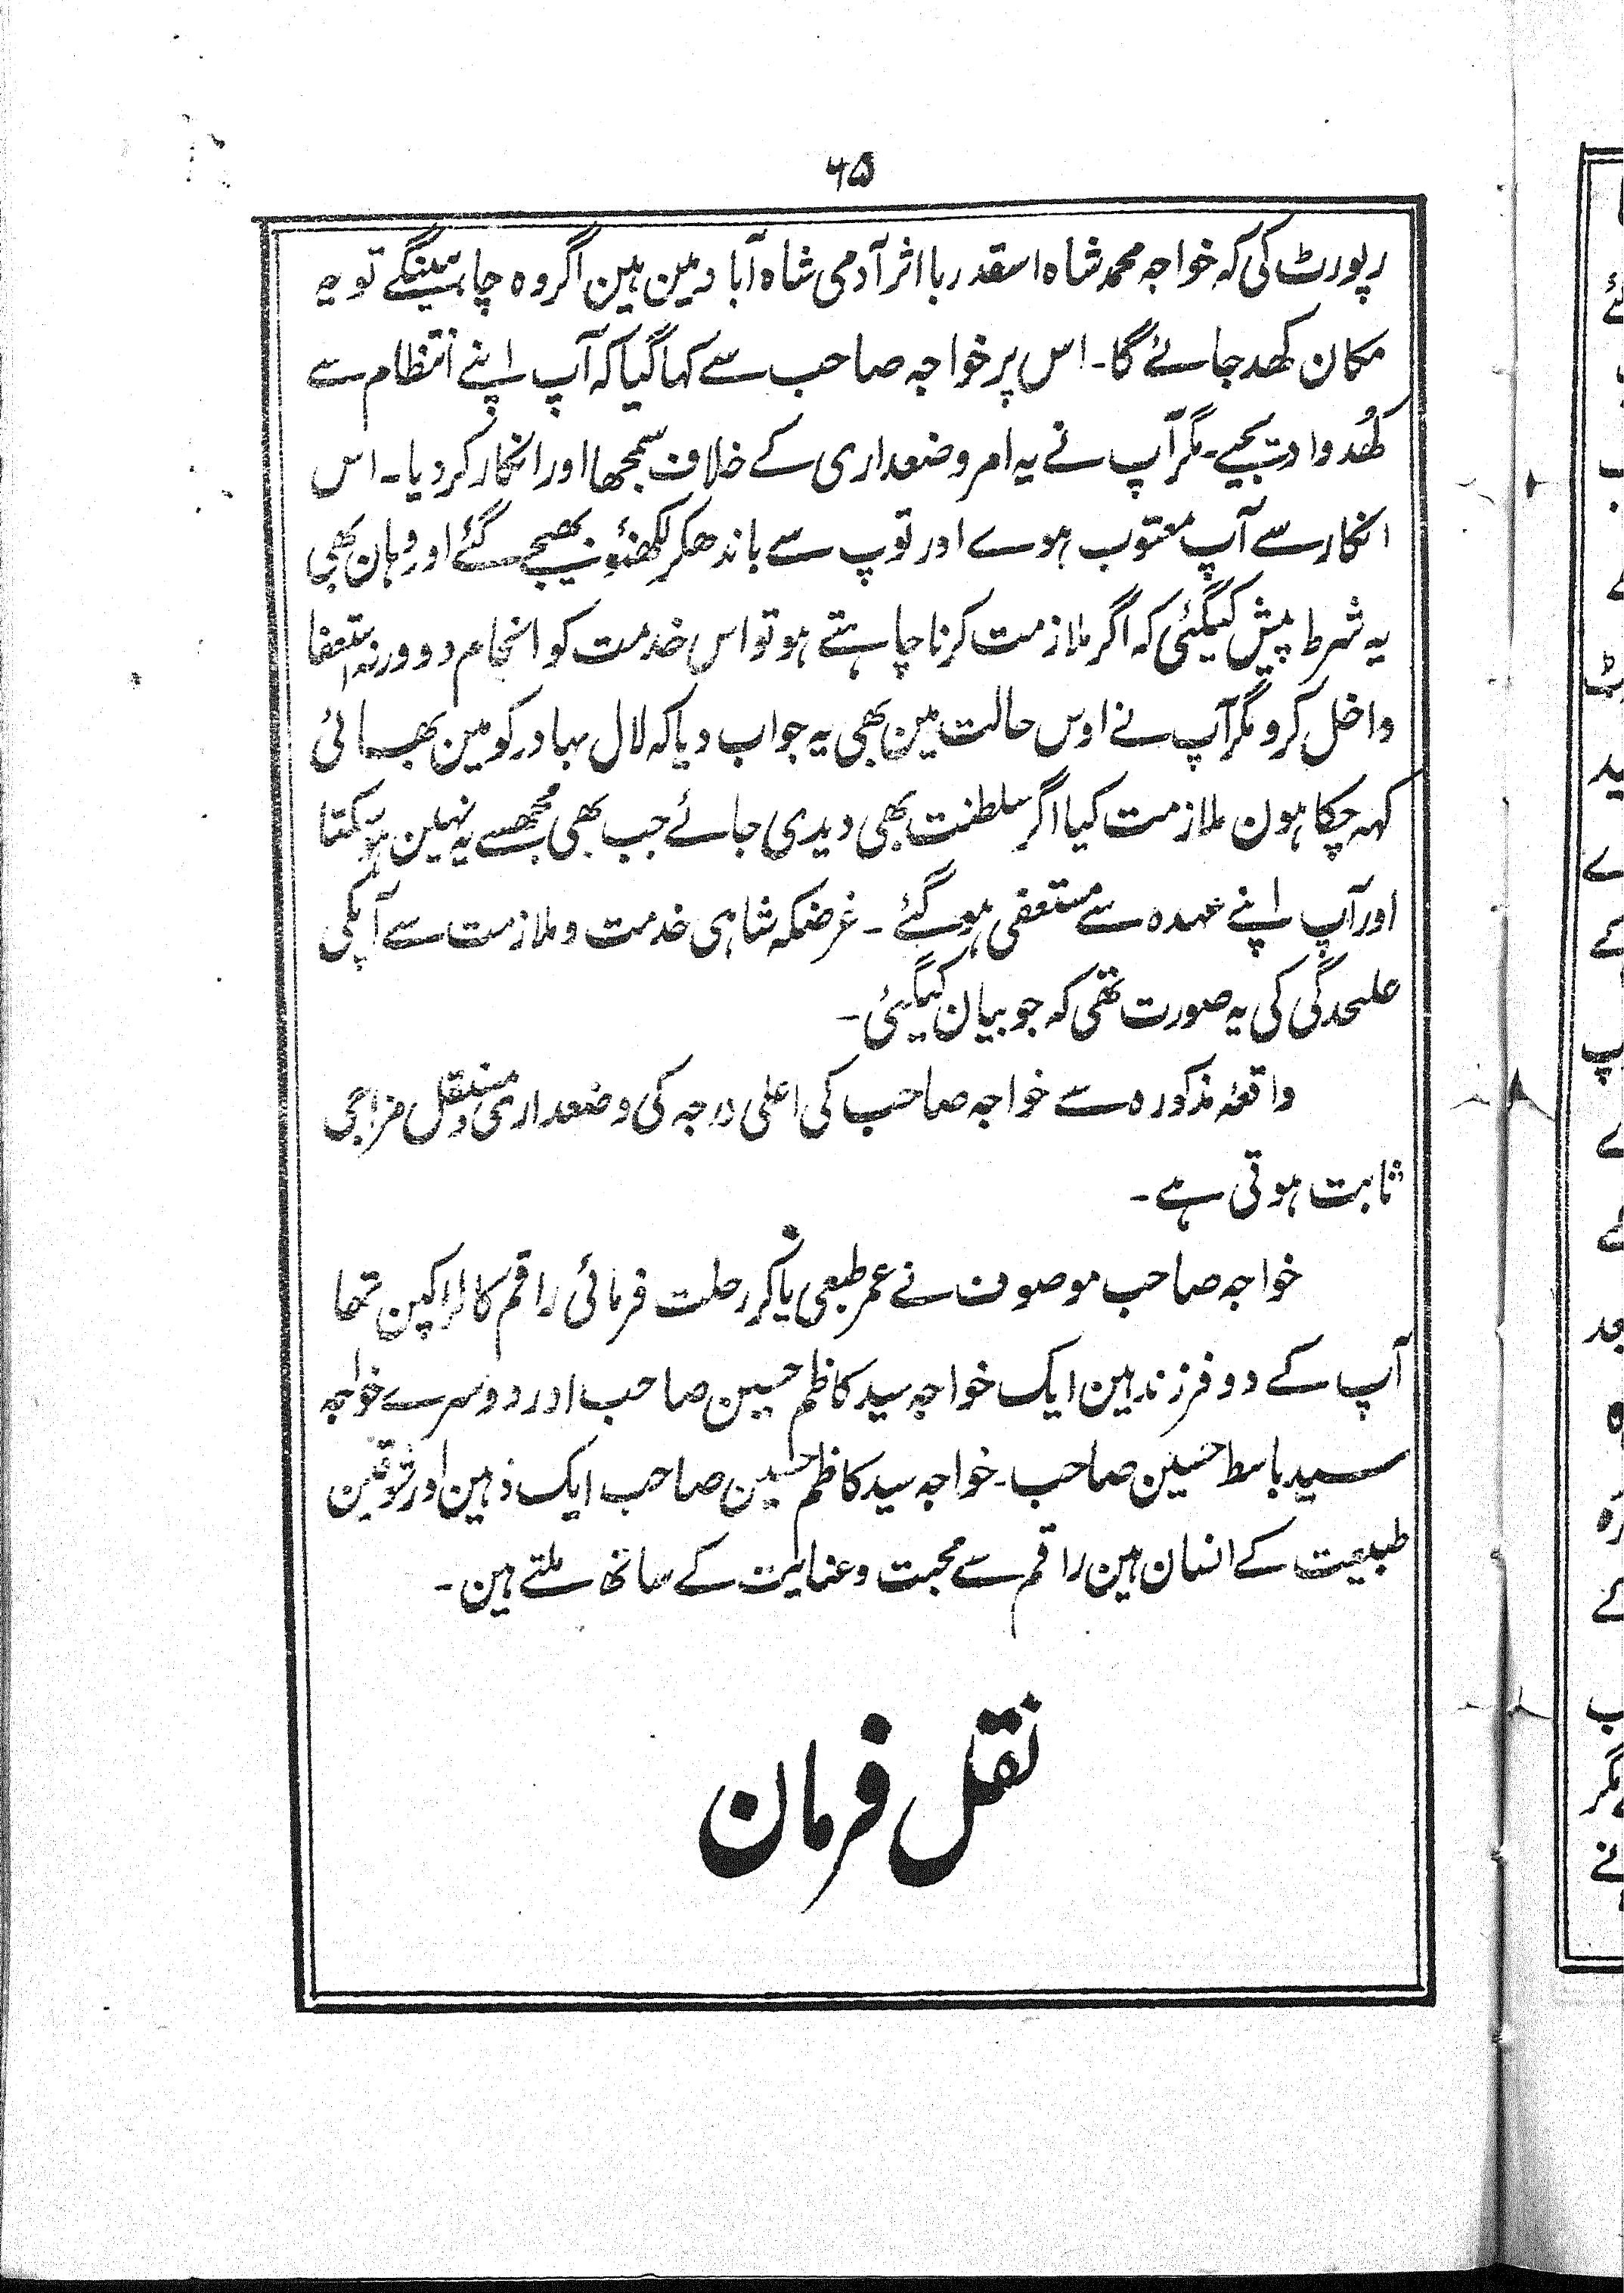 ۶۵
رپورٹ کی کہ خواجہ محمد شاہ اسقدر با اثر آدمی شاہ آباد مین ہین اگر وہ چاہینگے تو یہ
مکان کھد جائے گا۔ اس پر خواجہ صاحب سے کہا گیا کہ آپ اپنے انتظام سے
کھُدوا دیجیے۔ مگر آپ نے یہ امر وضعداری کے خلاف سمجھا اور انکار کر دیا۔ اس
انکار سے آپ معتوب ہوے اور توپ سے باندھکر لکھنؤ بھیجے گئے اور وہان بھی
یہ شرط پیش کیگئی کہ اگر ملازمت کرنا چاہتے ہو تو اس خدمت کو انجام دو ورنہ استعفا
داخل کرو مگر آپ نے اوس حالت مین بھی یہ جواب دیا کہ لال بہادر کو مین بھائی
کہہ چکا ہون ملازمت کیا اگر سلطنت بھی دیدی جائے جب بھی مجھسے یہ نہین ہو سکتا
اور آپ اپنے عہدہ سے مستعفی ہو گئے۔ غرضکہ شاہی خدمت و ملازمت سے آپکی
علحدگی کی یہ صورت تھی کہ جو بیان کیگئی۔
واقعۂ مذکورہ سے خواجہ صاحب کی اعلی درجہ کی وضعداری و مستقل مزاجی
ثابت ہوتی ہے۔
خواجہ صاحب موصوف نے عمر طبعی پاکر رحلت فرمائی راقم کا لڑکپن تھا
آپ کے دو فرزند ہین ایک خواجہ سید کاظم حسین صاحب اور دوسرے خواجہ
سید باسط حسین صاحب۔ خواجہ سید کاظم حسین صاحب ایک ذہین اور شوقین
طبیعت کے انسان ہین راقم سے محبت و عنایت کے ساتھ ملتے ہین۔
نقل فرمان